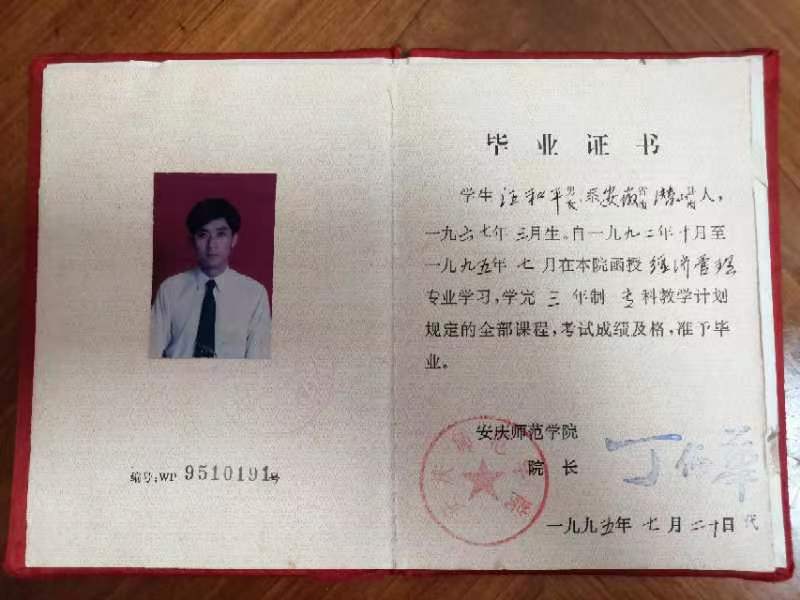 编号:WP 9510191号
毕业证书
学生 汪和平 男女,系安徽省市潜山县市人,
一九六七年三月生。自一九九二年十月至
一九九五年七月在本院函授 经济管理
专业学习,学完 三 年制 专科教学计划
规定的全部课程,考试成绩及格,准予毕
业。
安庆师范学院
院 长
一九九五年 七 月 二十日 代